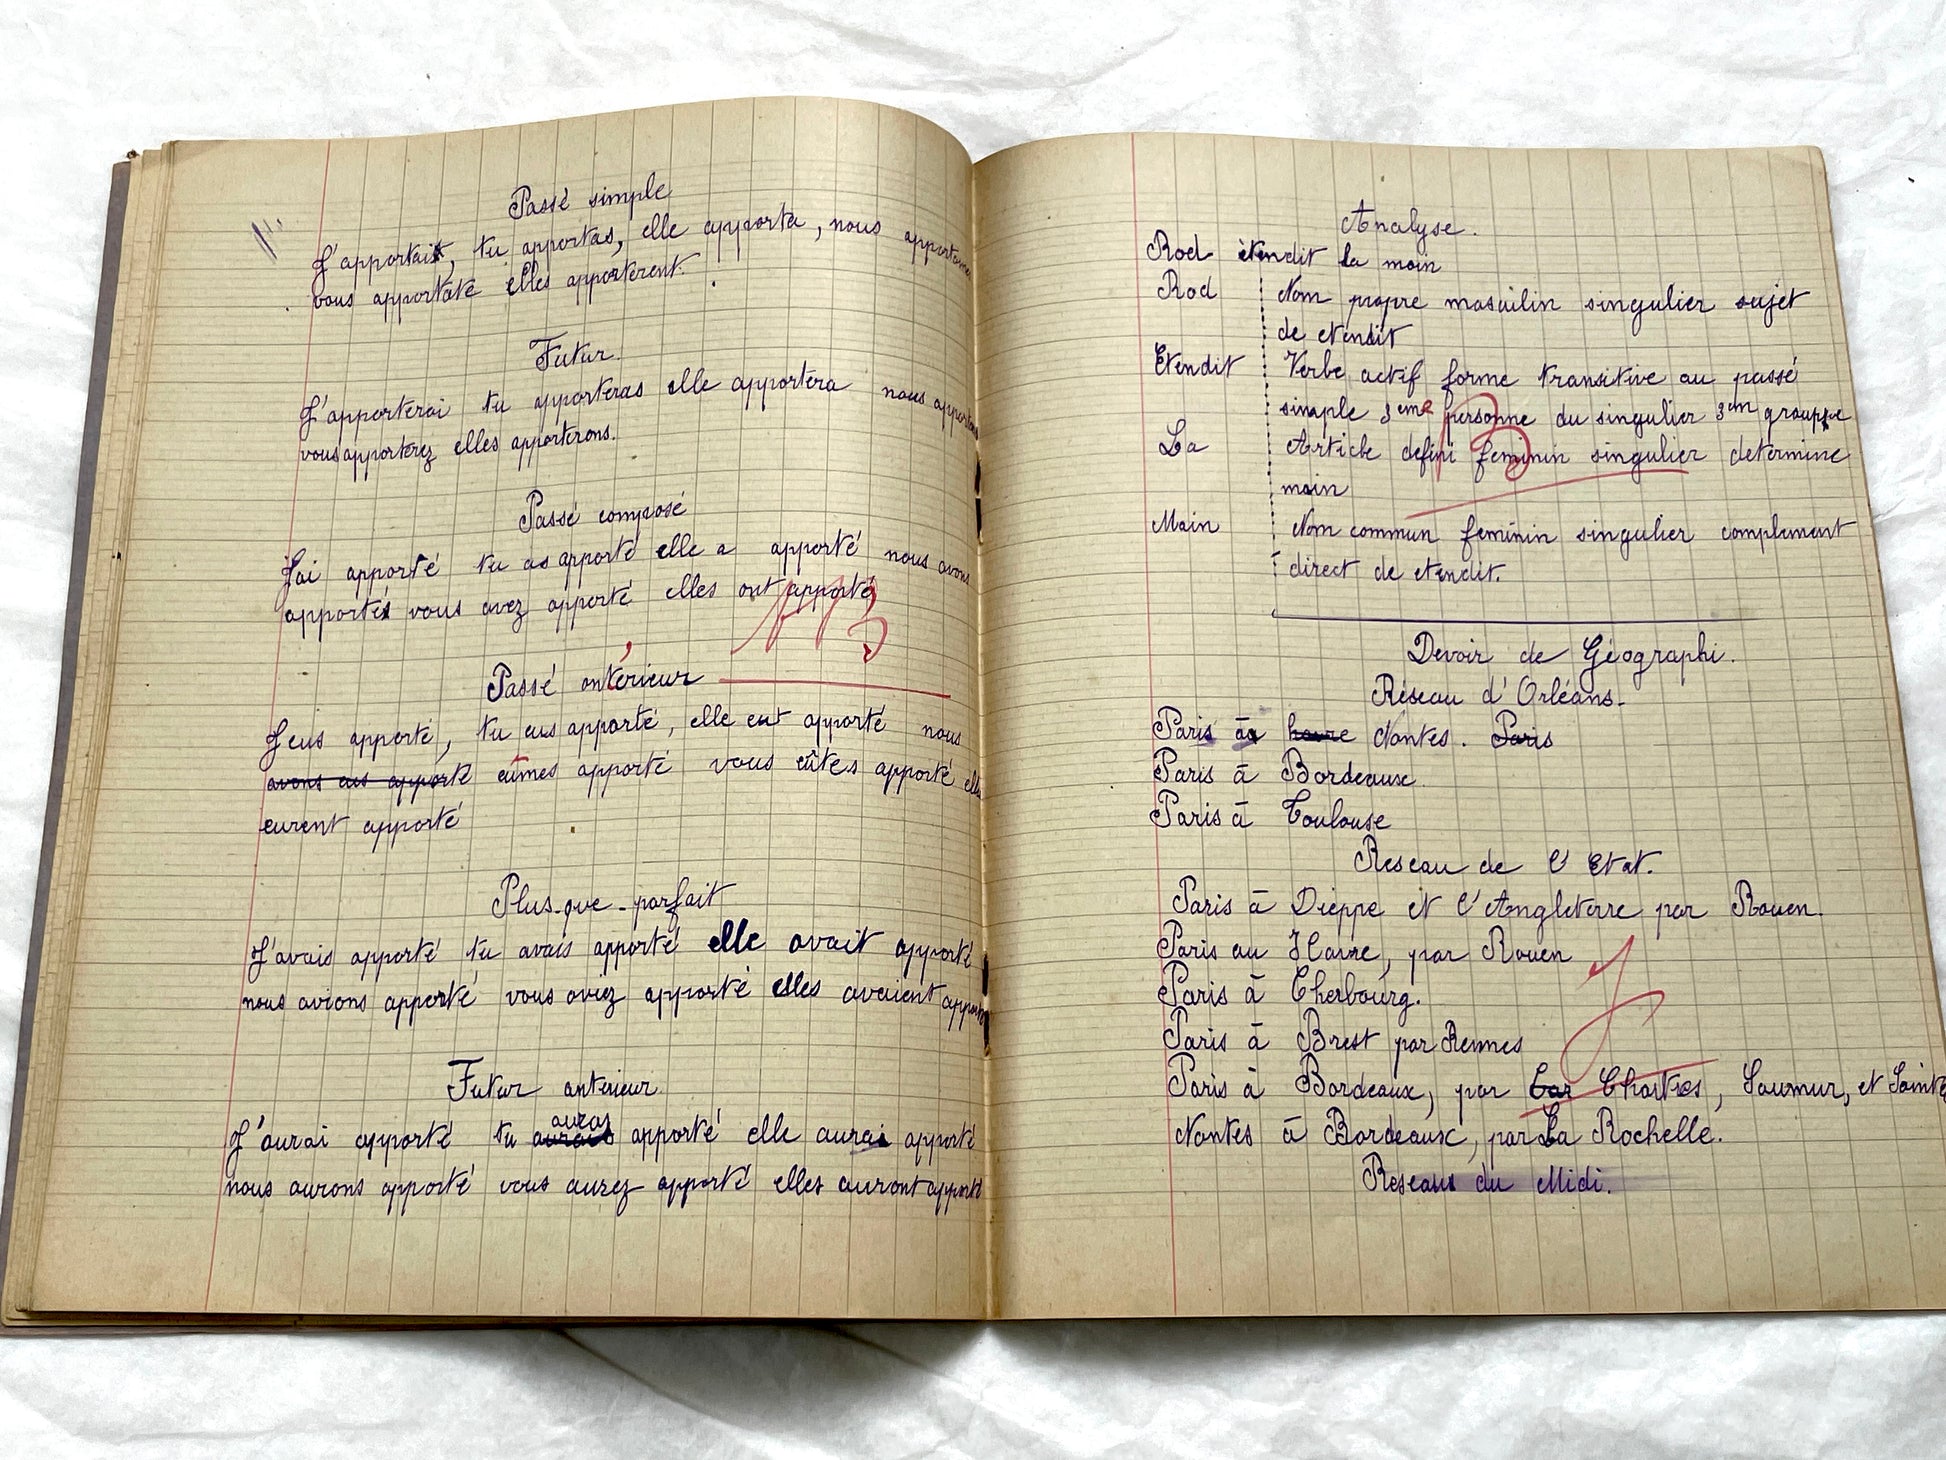 Passé simple
J'apportais, tu apportas, elle apporta, nous
vous apportate elles apportèrent.
Futur.
J'apporterai tu apporteras elle apportera nous
vous apporterez elles apporterons.
Passé composé
J'ai apporté tu as apporté elle a apporté nous avons
apportés vous avez apporté elles ont apporté
Passé antérieur
J'eus apporté, tu eus apporté, elle eut apporté nous
avons eus apporté eûmes apporté vous eûtes apporté elles
eurent apporté
Plus-que-parfait
J'avais apporté tu avais apporté elle avait apporté
nous avions apporté vous aviez apporté elles avaient
Futur antérieur
auras
J'aurai apporté tu apporté elle aura apporté
nous aurons apporté vous aurez apporté elles auront apporté
Analyse.
Rod étendit la main
Rod Nom propre masculin singulier sujet
de etendit
Etendit Verbe actif forme transitive au passé
simple 3eme personne du singulier 3em groupe
La Article defini feminin singulier determine
main
Main Nom commun feminin singulier complement
direct de etendit.
Devoir de Géographi.
Réseau d'Orléans.
Paris à havre Nantes. Paris
Paris à Bordeaux
Paris à Toulouse
Reseau de l'Etat.
Paris à Dieppe et l'Angleterre par Rouen.
Paris au Havre, par Rouen
Paris à Cherbourg.
Paris à Brest par Rennes
Paris à Bordeaux, par Chartres, Saumur, et
Nantes à Bordeaux, par La Rochelle.
Reseau du Midi.